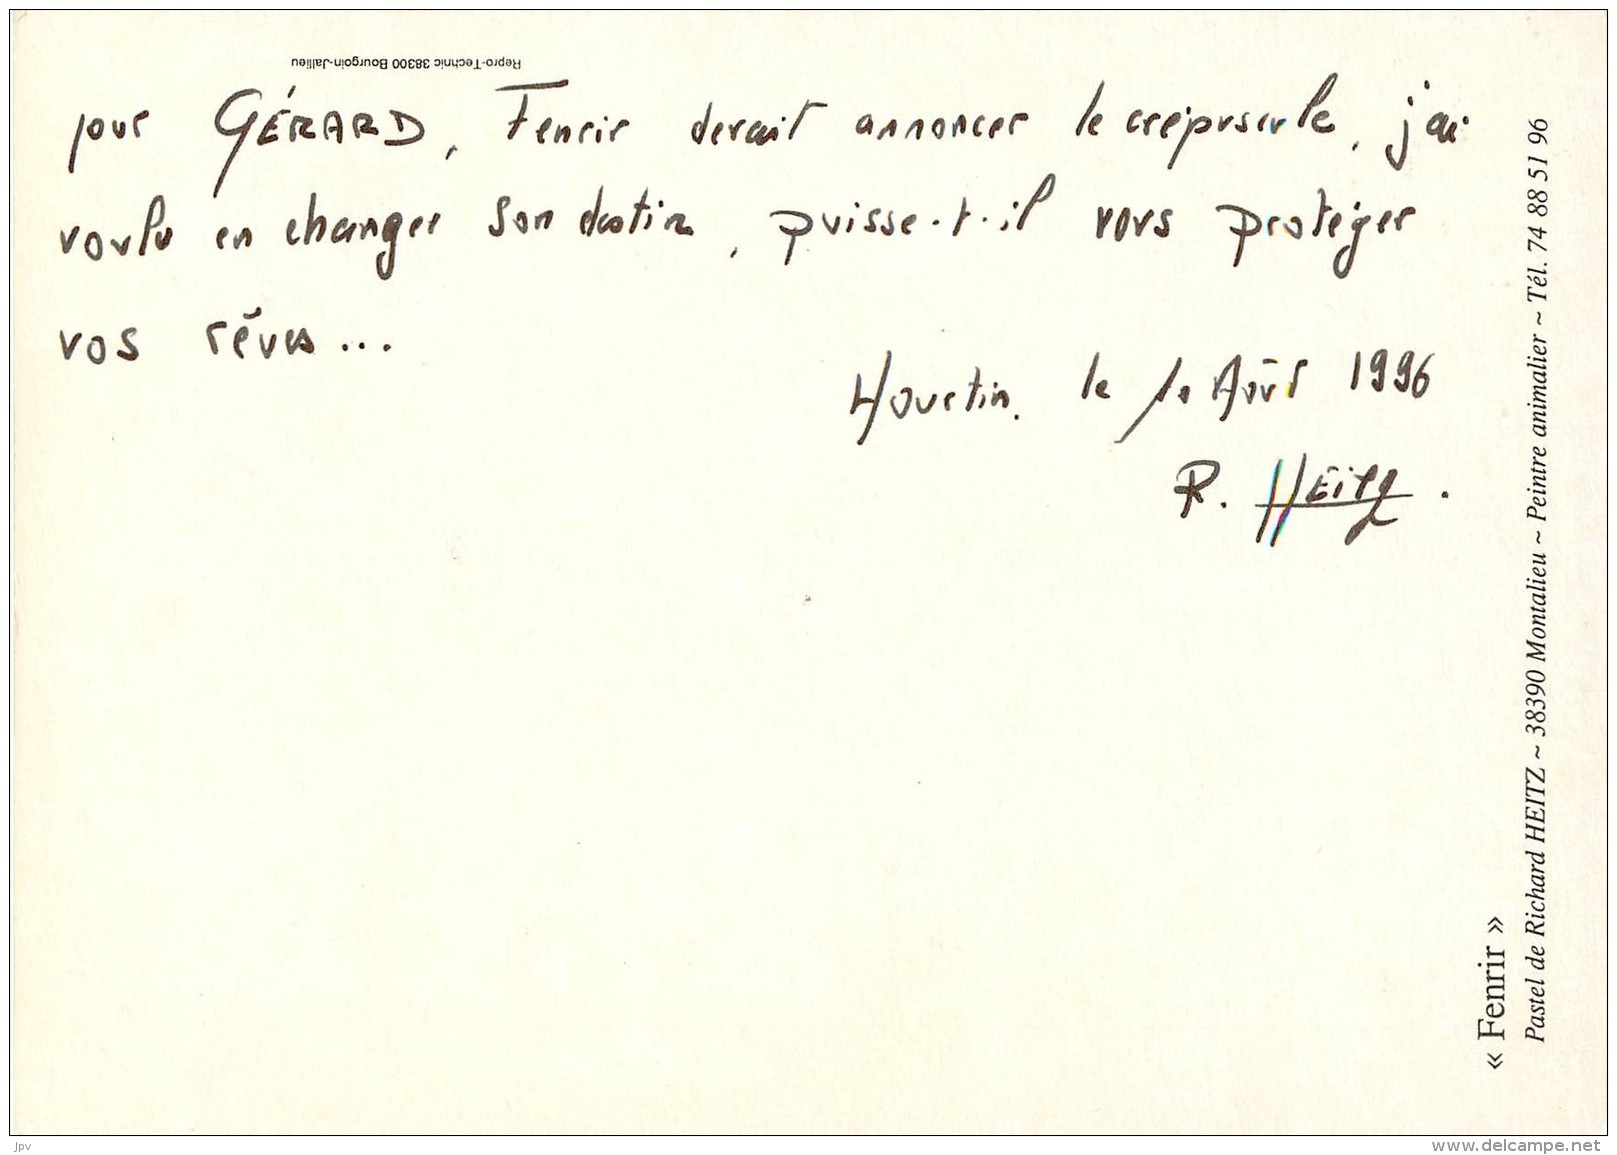 Repro-Technic 38300 Bourgoin-Jallieu
pour GÉRARD, Fenrir devait annoncer le crépuscule, j'ai
voulu en changer son destin, puisse-t-il vous protéger
vos rêves...
Hourtin, le 10 Août 1996
R. HEitz.
« Fenrir »
Pastel de Richard HEITZ ~ 38390 Montalieu ~ Peintre animalier ~ Tél. 74 88 51 96
jpv
www.delcampe.net